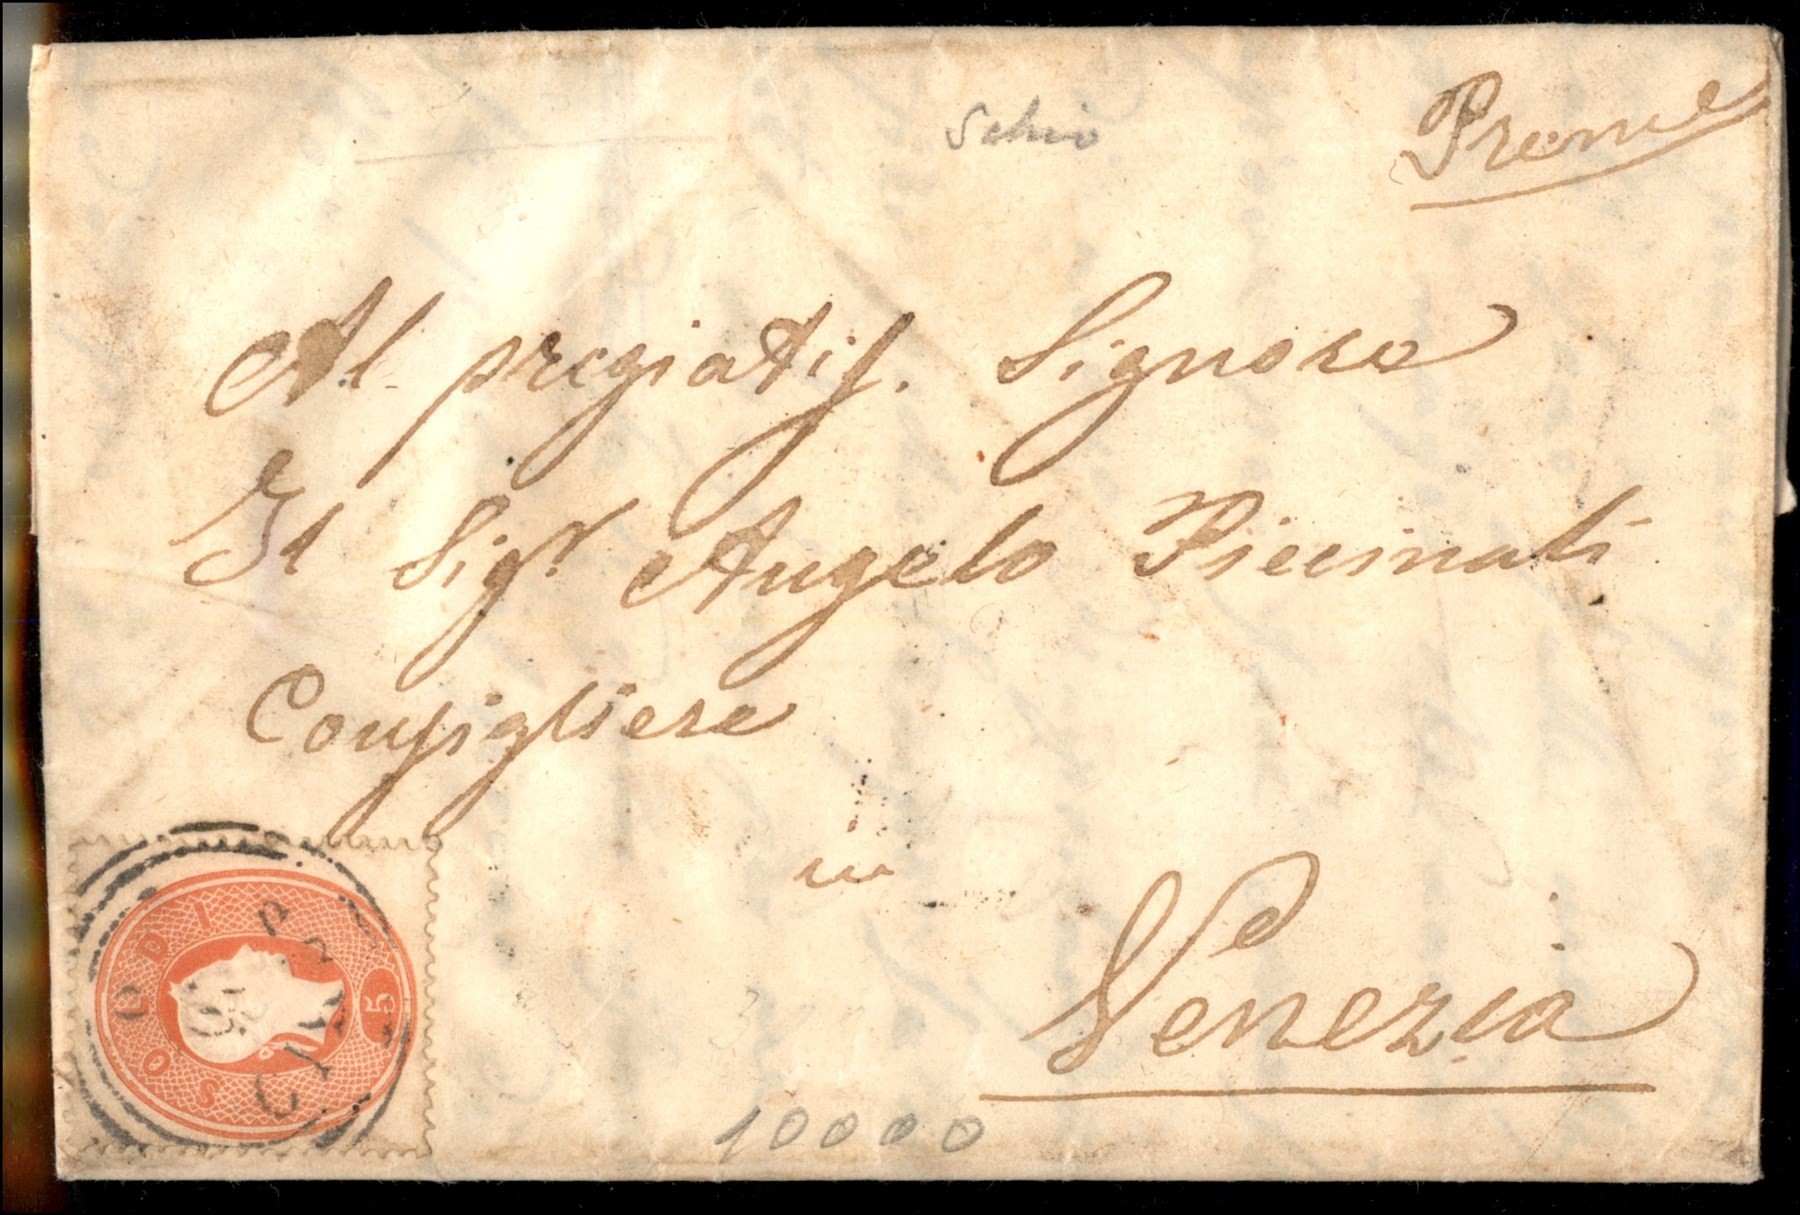 Schio
Preme
Al pregiatiss. Signore
Il Sigr. Angelo Piccinati
Consigliere
in
Venezia
10000
SOLDI
5